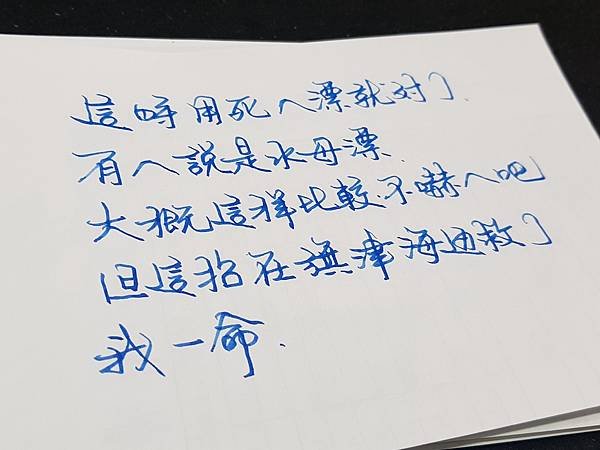 這時用死人漂就对了.
有人說是水母漂.
大概這样比較不嚇人吧
但這招在旗津海边救了
我一命.